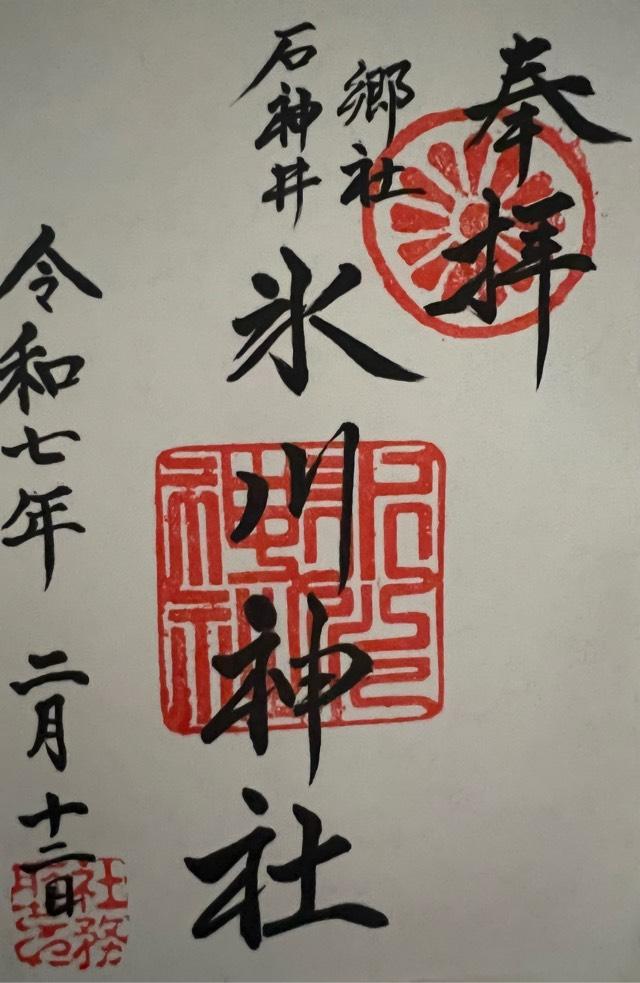 奉拝
郷社
石神井
氷川神社
令和七年 二月 十二日
社務